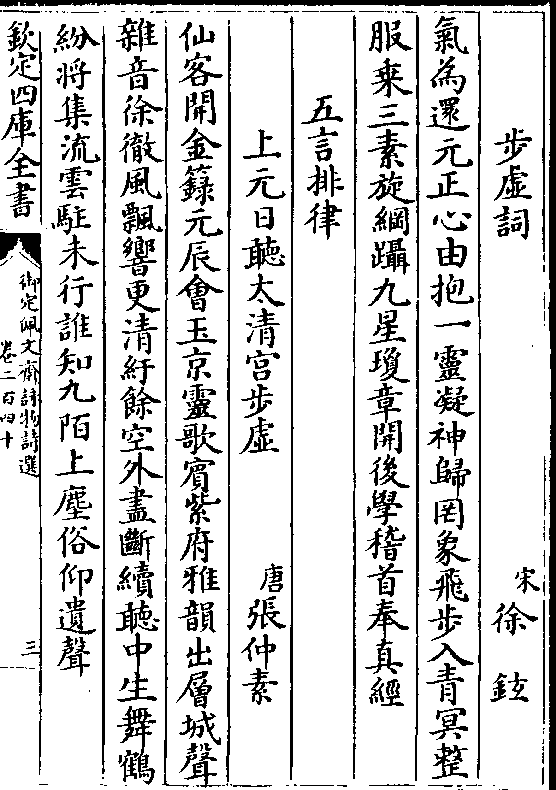 步虛詞
宋徐鉉
氣為還元正心由抱一靈凝神歸罔象飛步入青冥整
服乘三素旋綱躡九星瓊章開後學稽首奉真經
五言排律
上元日聽太清宫步虛
唐張仲素
仙客開金籙元辰會玉京靈歌賓紫府雅韻出層城聲
雜音徐徹風飄響更清紆餘空外盡斷續聽中生舞鶴
紛將集流雲駐未行誰知九陌上塵俗仰遺聲
欽定四庫全書
御定佩文齋詠物詩選
卷二百四十
三